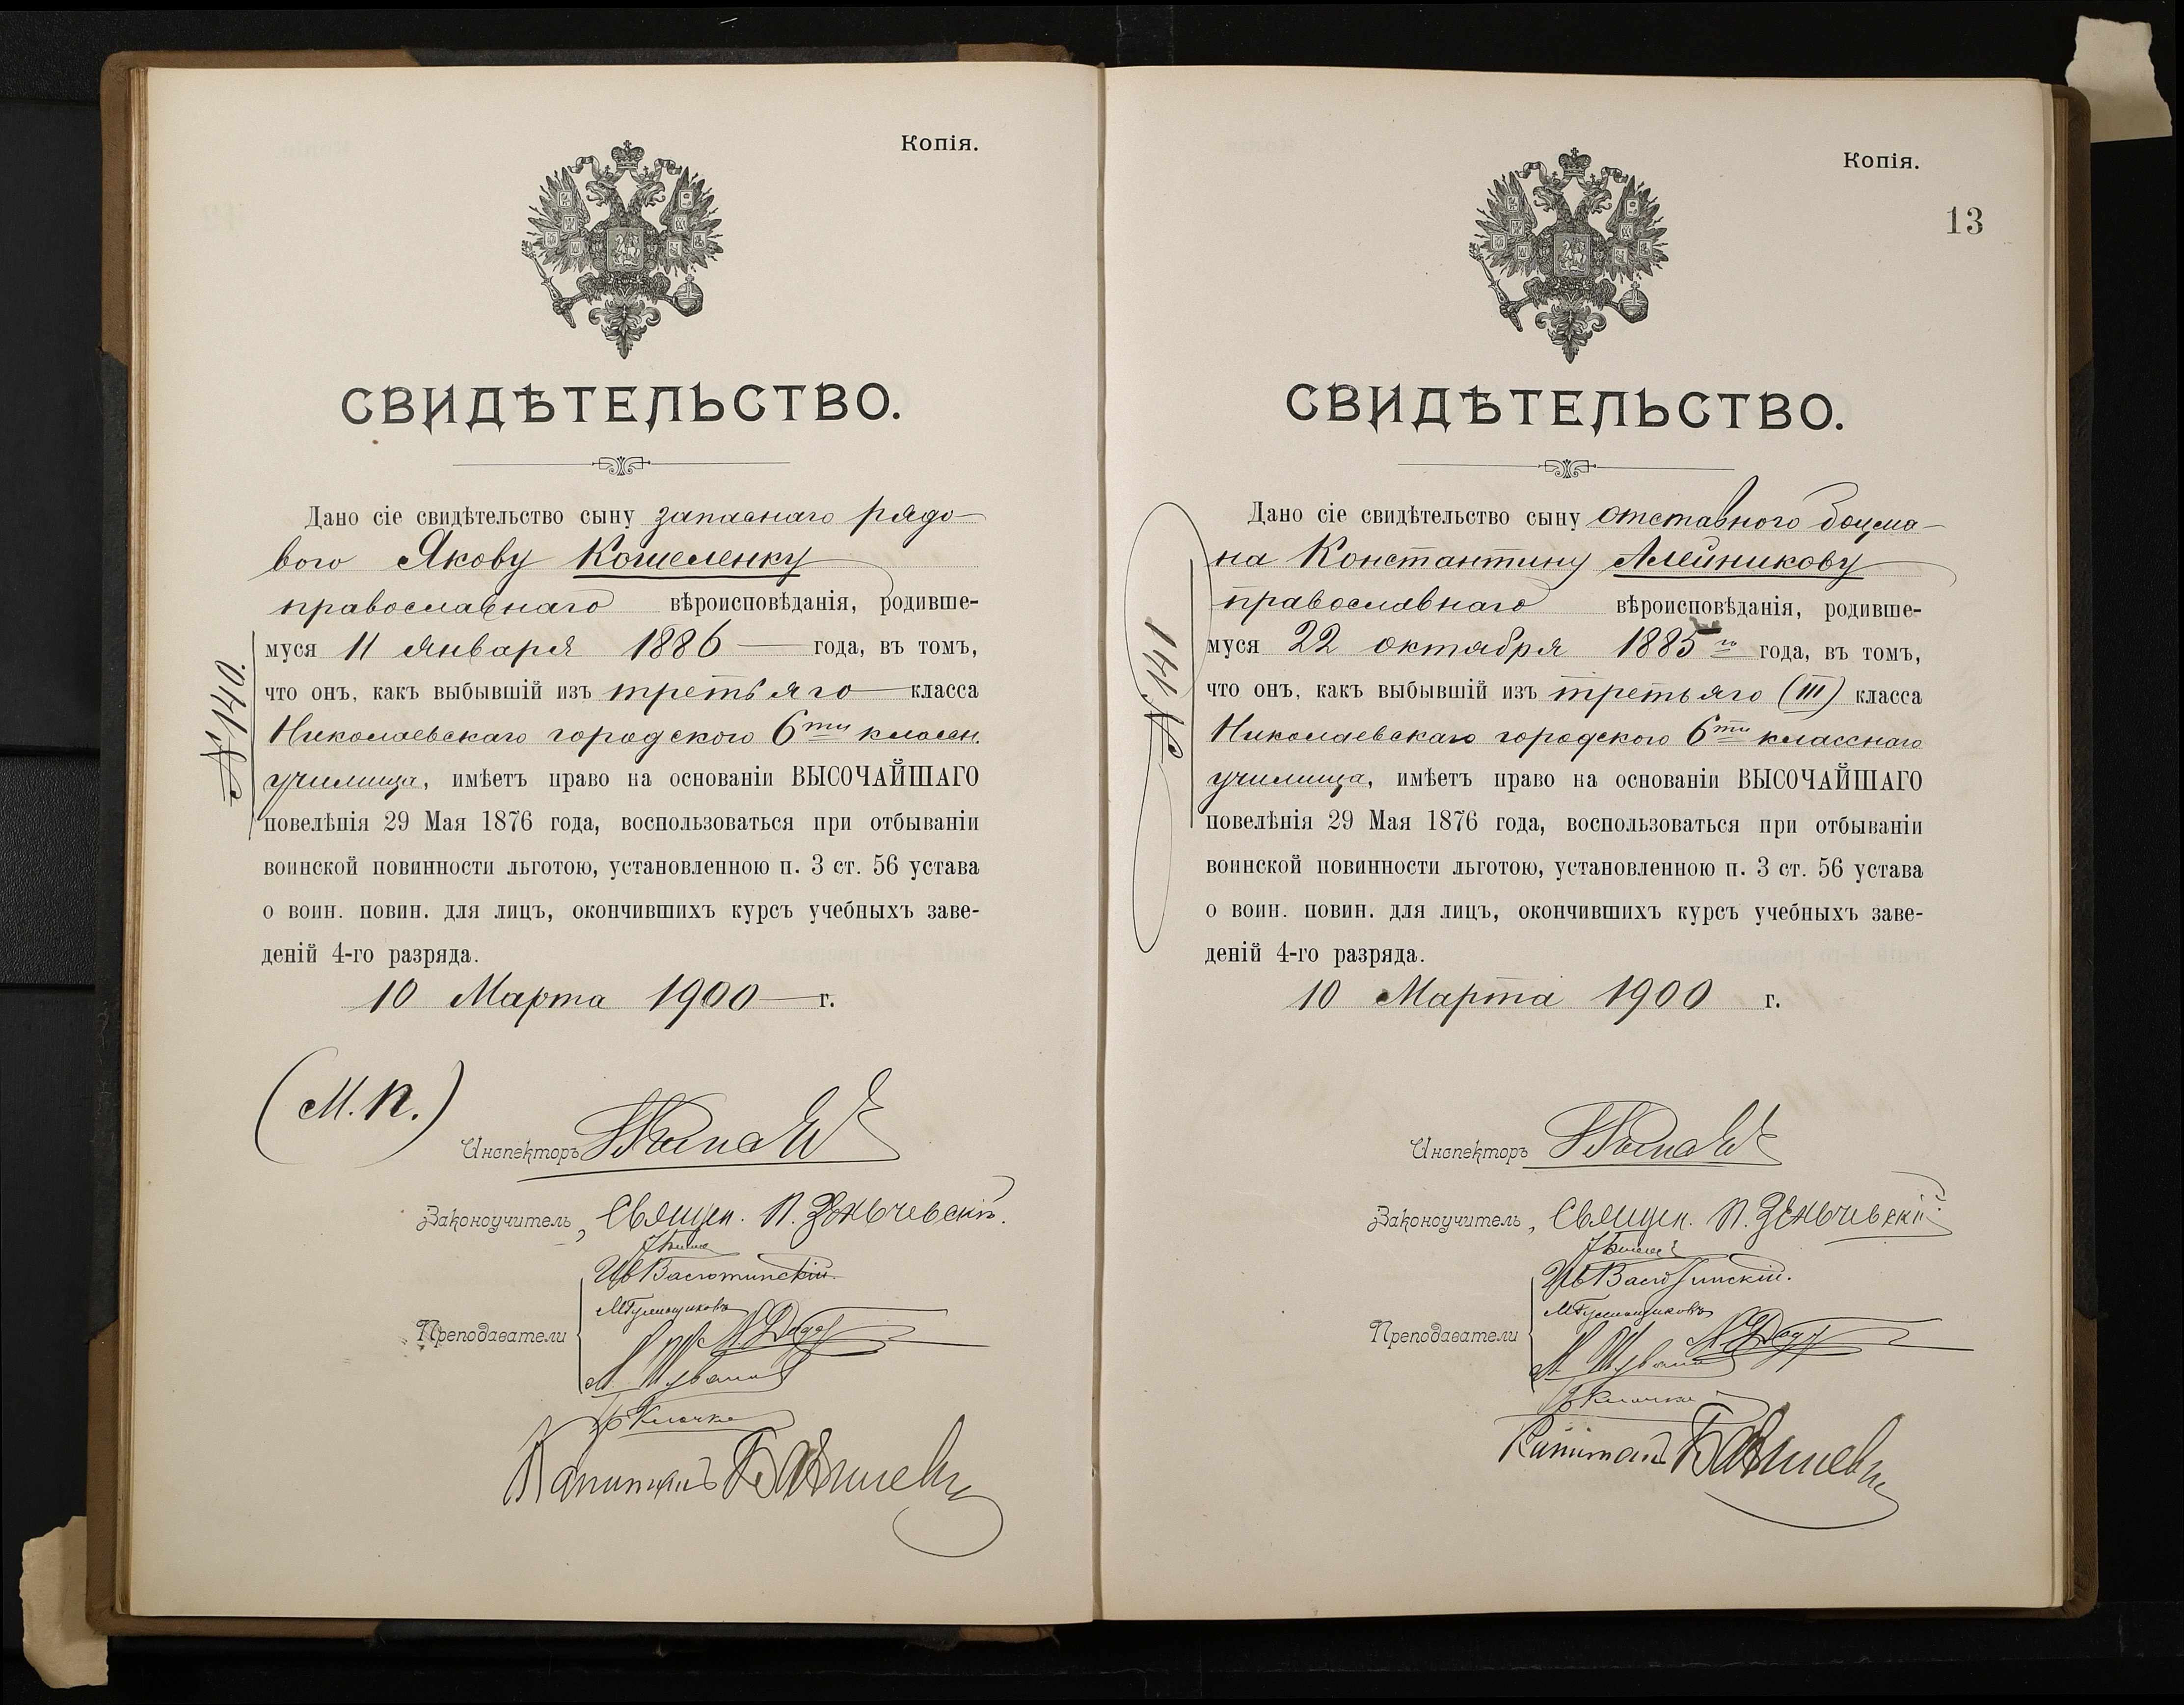 Копія.
СВИДѢТЕЛЬСТВО.
Дано сіе свидѣтельство сыну запаснаго рядо-
вого Якову Кошеленку
православнаго вѣроисповѣданія, родивше-
муся 11 Января 1886 — года, въ томъ,
что онъ, какъ выбывшій изъ третьяго класса
Николаевскаго городского 6ти классн.
училища, имѣетъ право на основаніи ВЫСОЧАЙШАГО
повелѣнія 29 Мая 1876 года, воспользоваться при отбываніи
воинской повинности льготою, установленною п. 3 ст. 56 устава
о воин. повин. для лицъ, окончившихъ курсъ учебныхъ заве-
деній 4-го разряда.
10 Марта 1900 — г.
№ 140.
(М.П.)
Инспекторъ
Законоучитель, Священ. П. Зеньчевскій.
Ив Васютинскій.
Преподаватели
Клочко
Капитанъ
Копія.
13
СВИДѢТЕЛЬСТВО.
Дано сіе свидѣтельство сыну отставного боцма-
на Константину Алейникову
православнаго вѣроисповѣданія, родивше-
муся 22 октября 1885 го года, въ томъ,
что онъ, какъ выбывшій изъ третьяго (III) класса
Николаевскаго городского 6ти класснаго
училища, имѣетъ право на основаніи ВЫСОЧАЙШАГО
повелѣнія 29 Мая 1876 года, воспользоваться при отбываніи
воинской повинности льготою, установленною п. 3 ст. 56 устава
о воин. повин. для лицъ, окончившихъ курсъ учебныхъ заве-
деній 4-го разряда.
10 Марта 1900 г.
141 №
Инспекторъ
Законоучитель, Священ. П. Зеньчевскій.
Ив Васютинскій.
Преподаватели
Клочко
Капитанъ